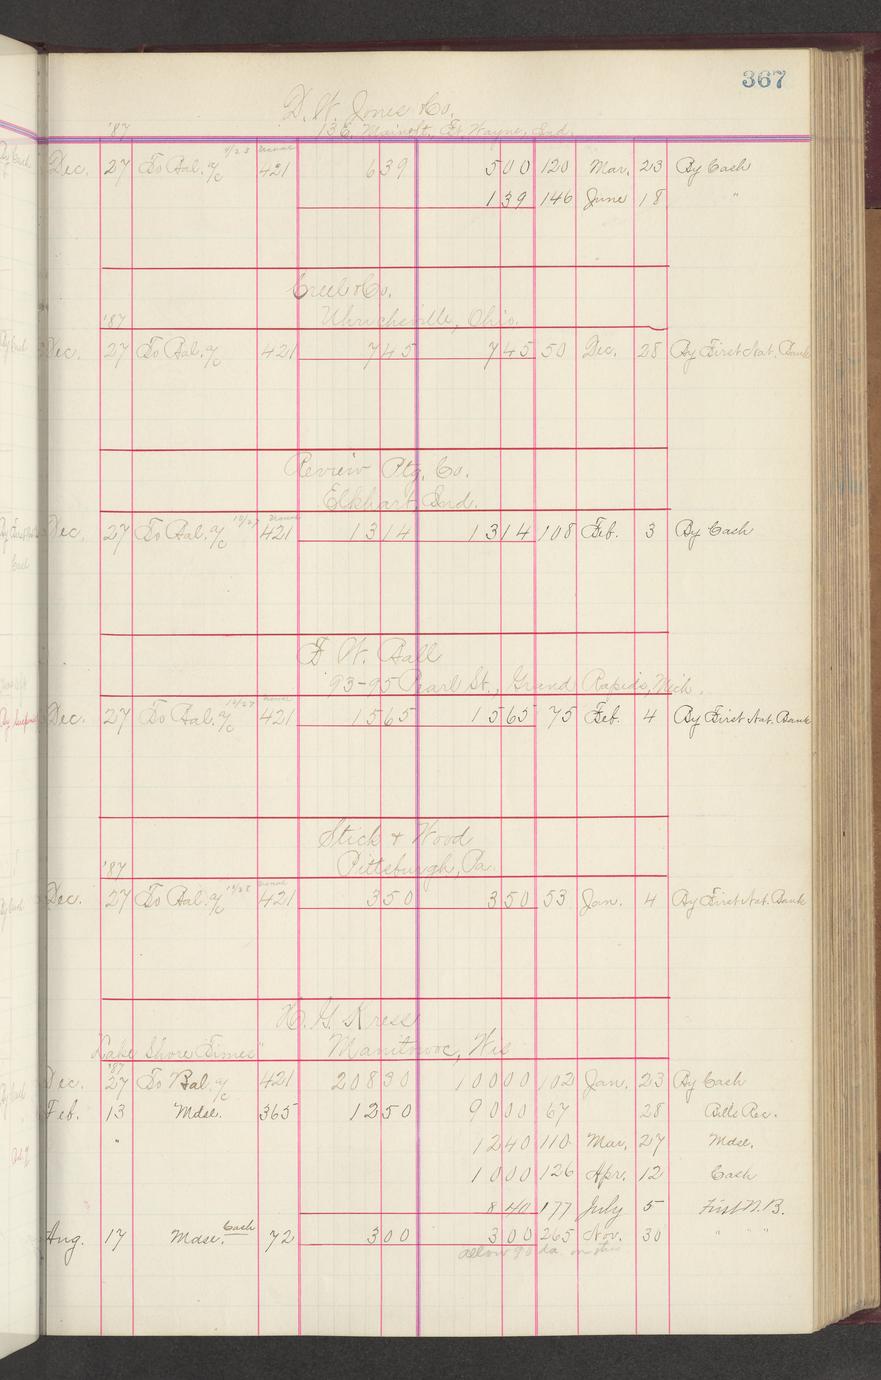 367
D. W. Jones & Co.
136 Main St. Ft. Wayne, Ind.
'87
Dec. 27 To Bal. a/c 421 639 500 120 Mar. 23 By Cash
139 146 June 18 "
Creel & Co.
Uhrichsville, Ohio.
'87
Dec. 27 To Bal. a/c 421 745 745 50 Dec. 28 By First Nat. Bank
Review Ptg. Co.
Elkhart, Ind.
Dec. 27 To Bal. a/c 12/27 421 1314 1314 108 Feb. 3 By Cash
F. W. Ball
93-95 Pearl St., Grand Rapids, Mich.
Dec. 27 To Bal. a/c 12/27 421 1565 1565 75 Feb. 4 By First Nat. Bank
Stick & Wood
Pittsburgh, Pa.
'87
Dec. 27 To Bal. a/c 12/28 421 350 350 53 Jan. 4 By First Nat. Bank
H. G. Kress
"Lake Shore Times" Manitowoc, Wis
'87
Dec. 27 To Bal. a/c 421 20830 10000 102 Jan. 23 By Cash
Feb. 13 Mdse. 365 1250 9000 67 28 Bills Rec.
" 1240 110 Mar. 27 Mdse.
1000 126 Apr. 12 Cash
840 177 July 5 First N. B.
Aug. 17 Mdse. Cash 72 300 300 265 Nov. 30 " " "
allow 90 da. on this